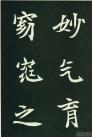 妙气育
窈窕之